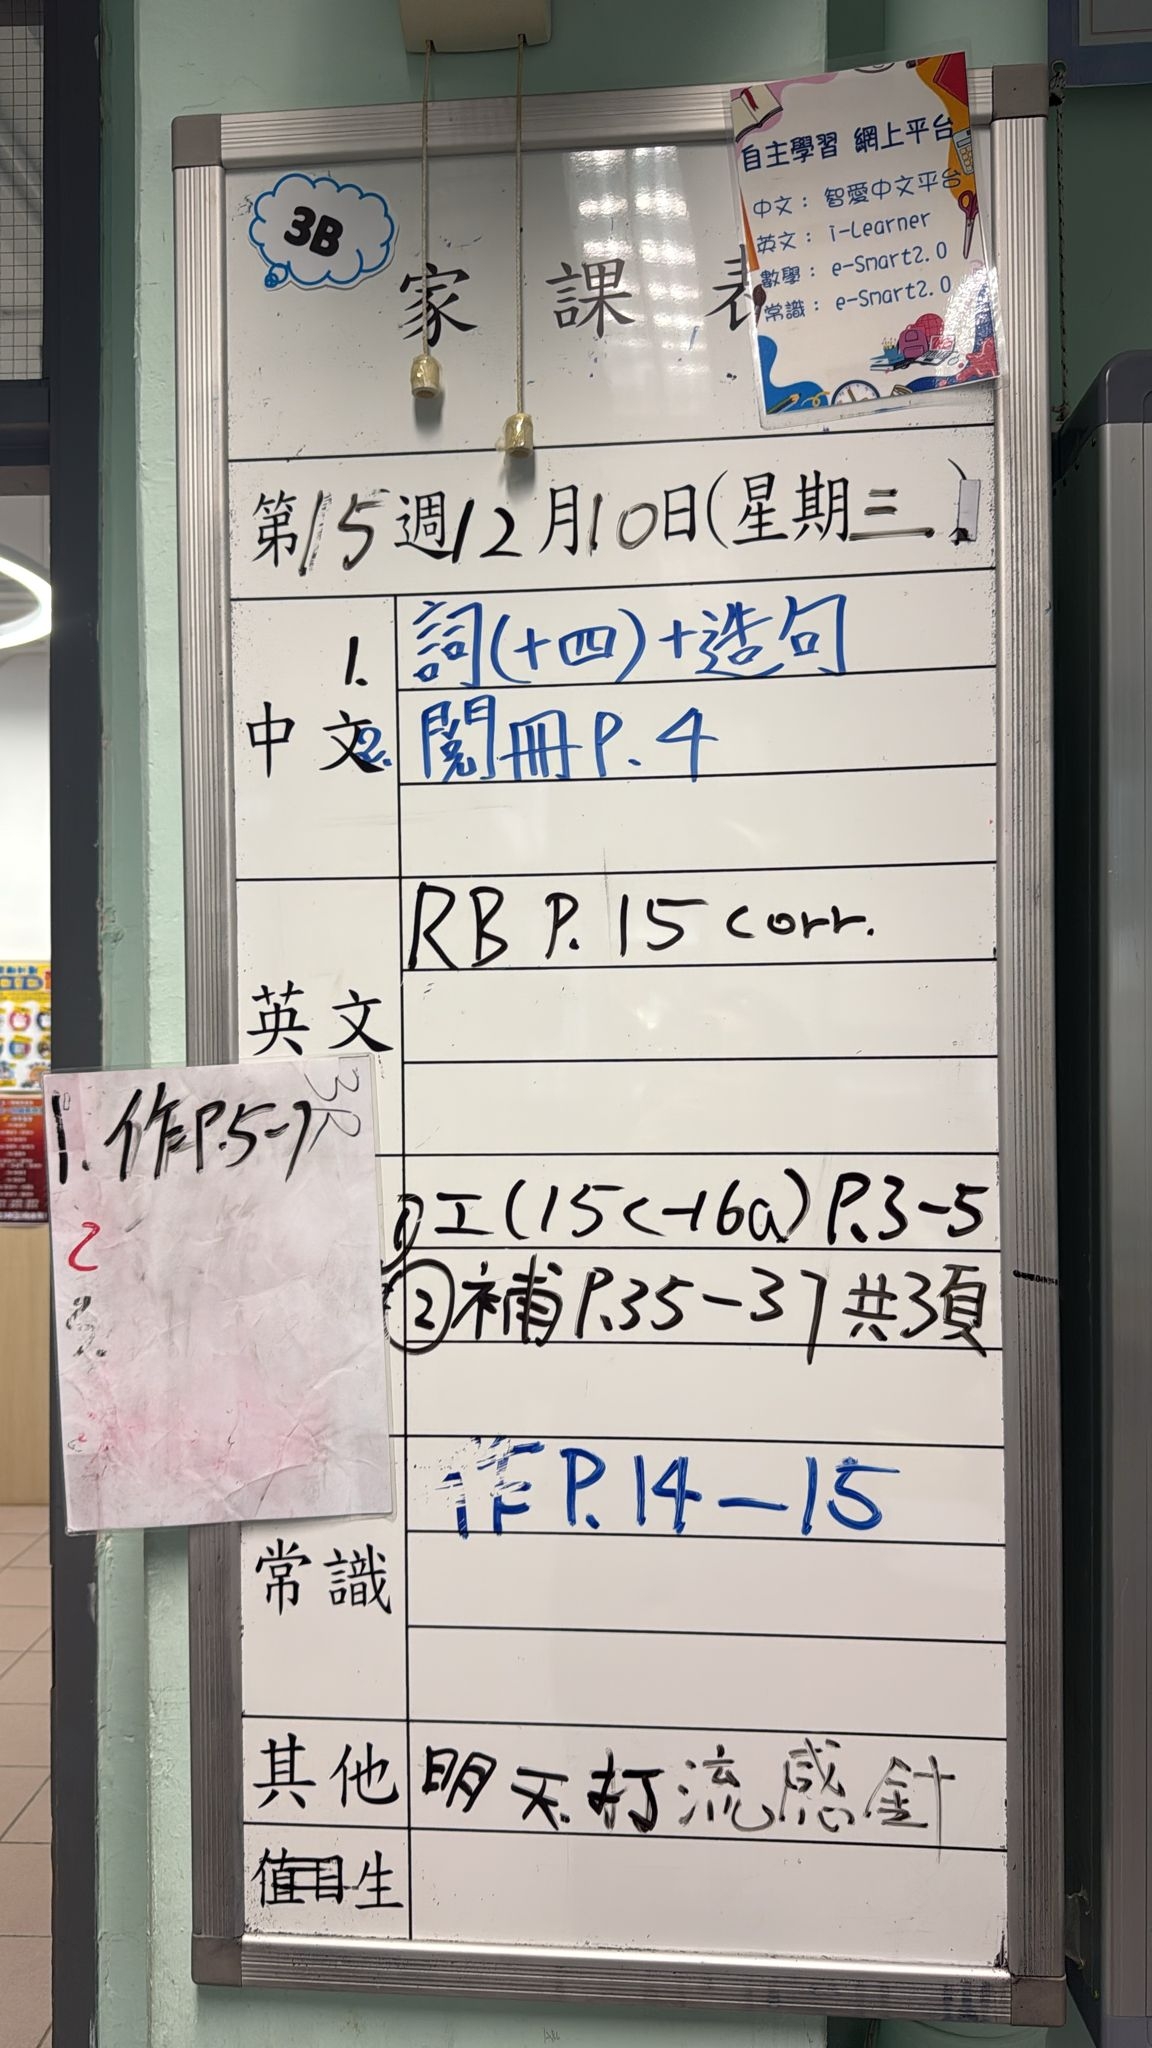 3B
自主學習 網上平台
中文：智愛中文平台
英文：i-Learner
數學：e-Smart2.0
常識：e-Smart2.0
家課表
第15週12月10日(星期三)
中文
1. 詞(十四)+造句
2. 閱冊P.4
英文
RB P.15 corr.
1. 作P.5-7
2
① 工(15c-16a) P.3-5
② 補P.35-37共3頁
常識
作P.14-15
其他
明天打流感針
值日生